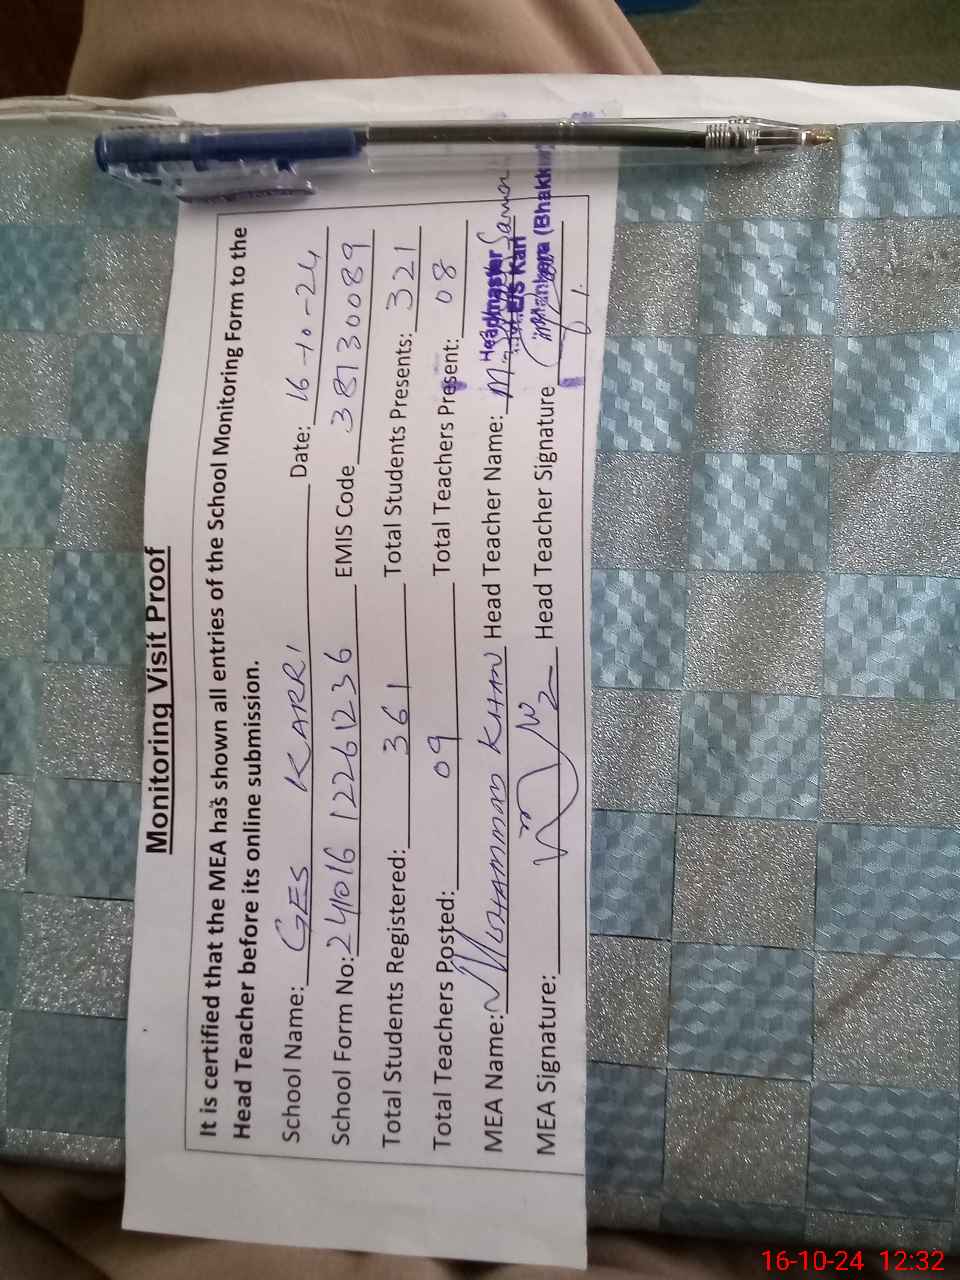 Monitoring Visit Proof
It is certified that the MEA has shown all entries of the School Monitoring Form to the
Head Teacher before its online submission.
School Name: GES KARRI Date: 16-10-24
School Form No: 241016 12261236 EMIS Code 38730089
Total Students Registered: 361 Total Students Presents: 321
Total Teachers Posted: 09 Total Teachers Present: 08
MEA Name: MUHAMMAD KHAN Head Teacher Name:
Headmaster
MEA Signature: Head Teacher Signature
(Bhakkar)
16-10-24 12:32